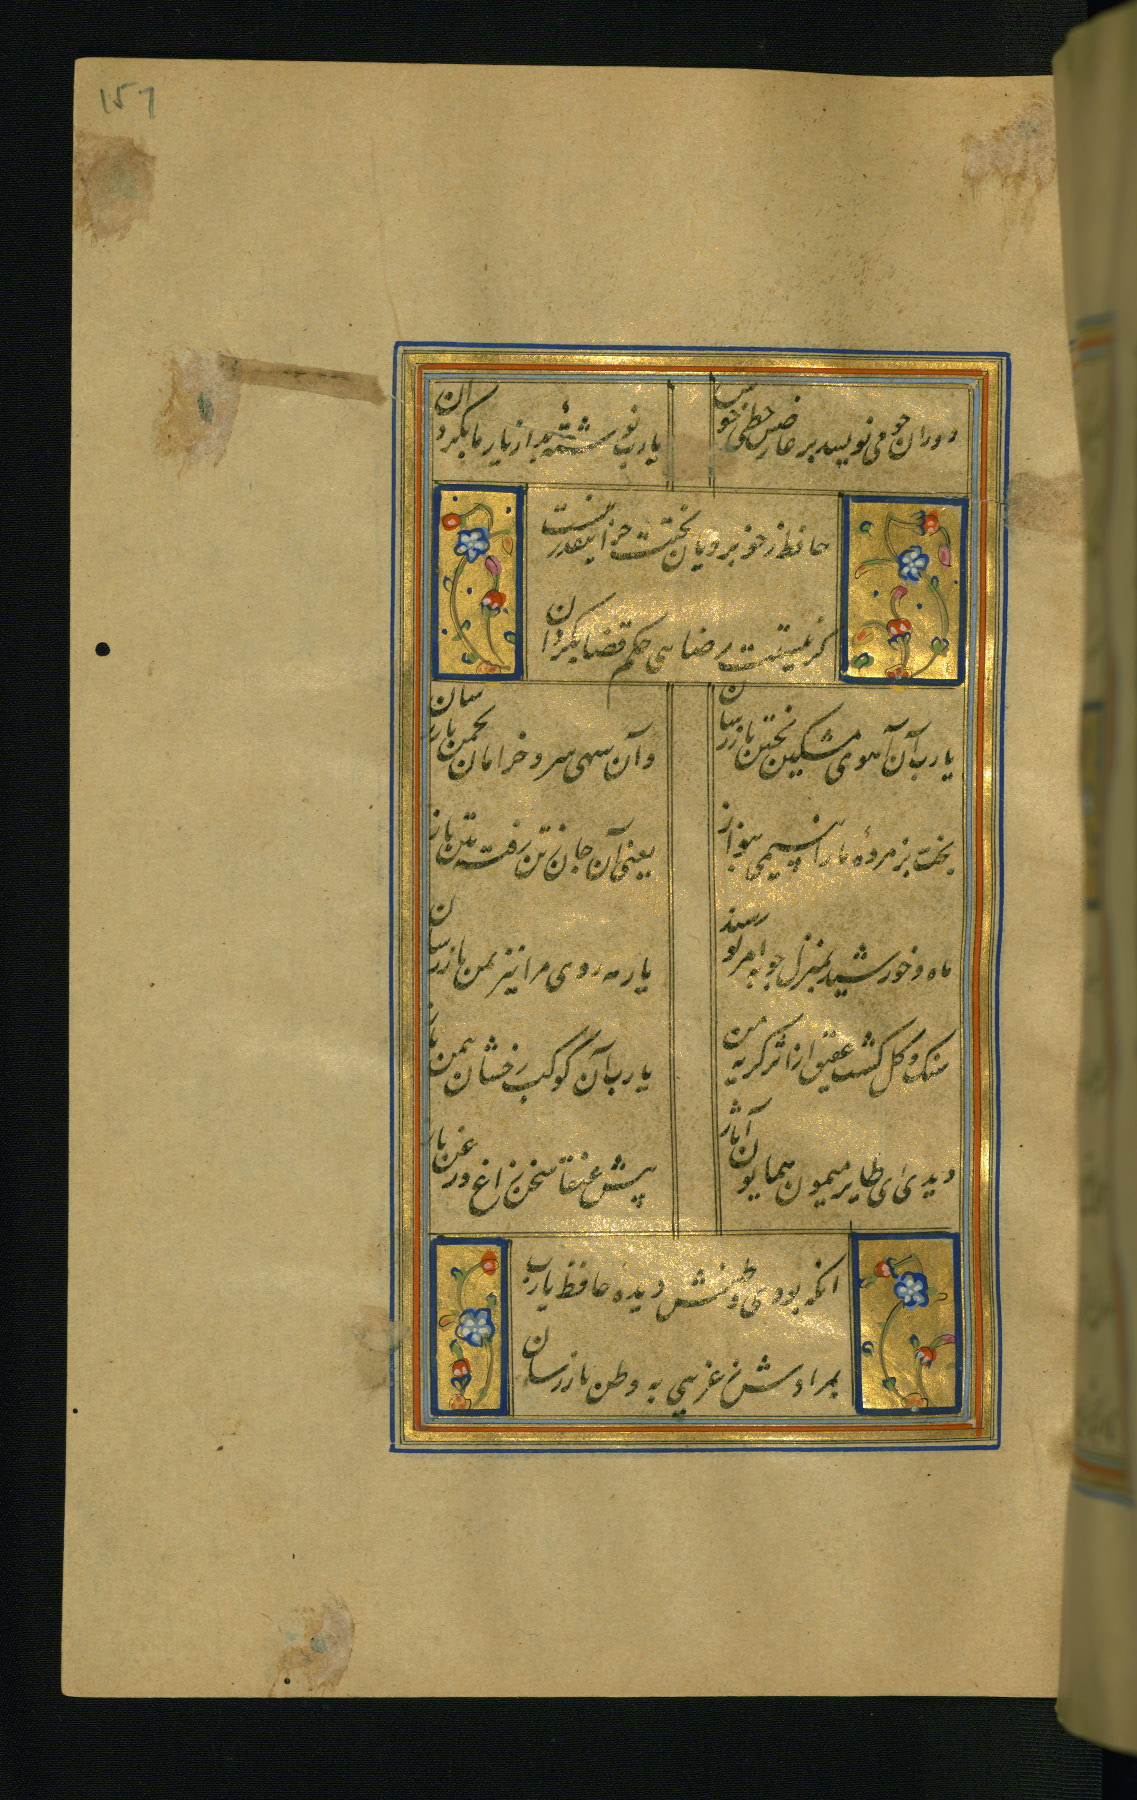 157
دوران چو می نویسد بر عارضش خطی خوش
یارب نوشتهٔ بد از یار ما بگردان
حافظ ز خوبرویان بختت جز اینقدر نیست
کر نیستت رضایی حکم قضا بگردان
یارب آن آهوی مشکین بختن باز رسان
وآن سهی سرو خرامان بچمن باز رسان
بخت پزمردهٔ ما را بنسیمی بنواز
یعنی آن جان ز تن رفته بتن باز
ماه و خورشید بمنزل چو بامر تو رسند
یار مه روی مرا نیز بمن باز رسان
سنک و کل کشت عقیق از اثر کریه من
یارب آن کوکب رخشان بیمن باز
دیدی ای طایر میمون همایون آثار
پیش عنقا سخن زاغ و زغن باز
آنکه بودی وطنش دیدهٔ حافظ یارب
بمرادش ز غریبی به وطن باز رسان